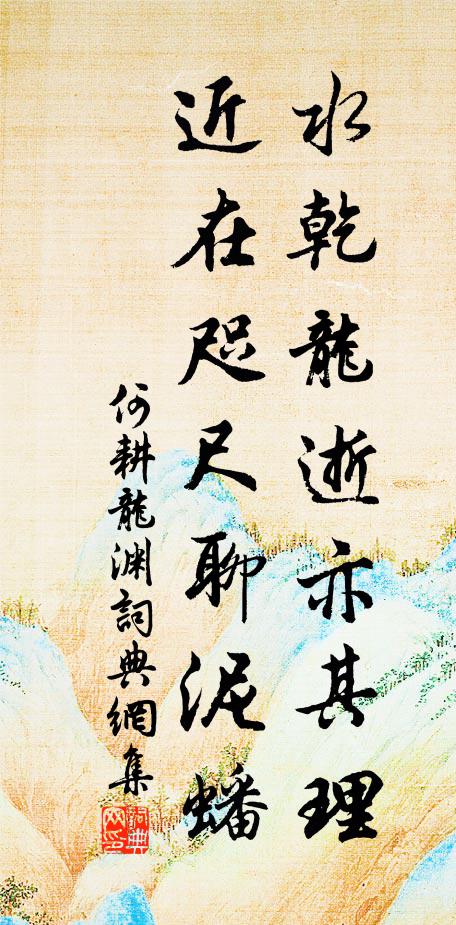 水乾龍逝亦其理
近在咫尺聊泥蟠
何耕龍渊詞典網集
詞典
网印